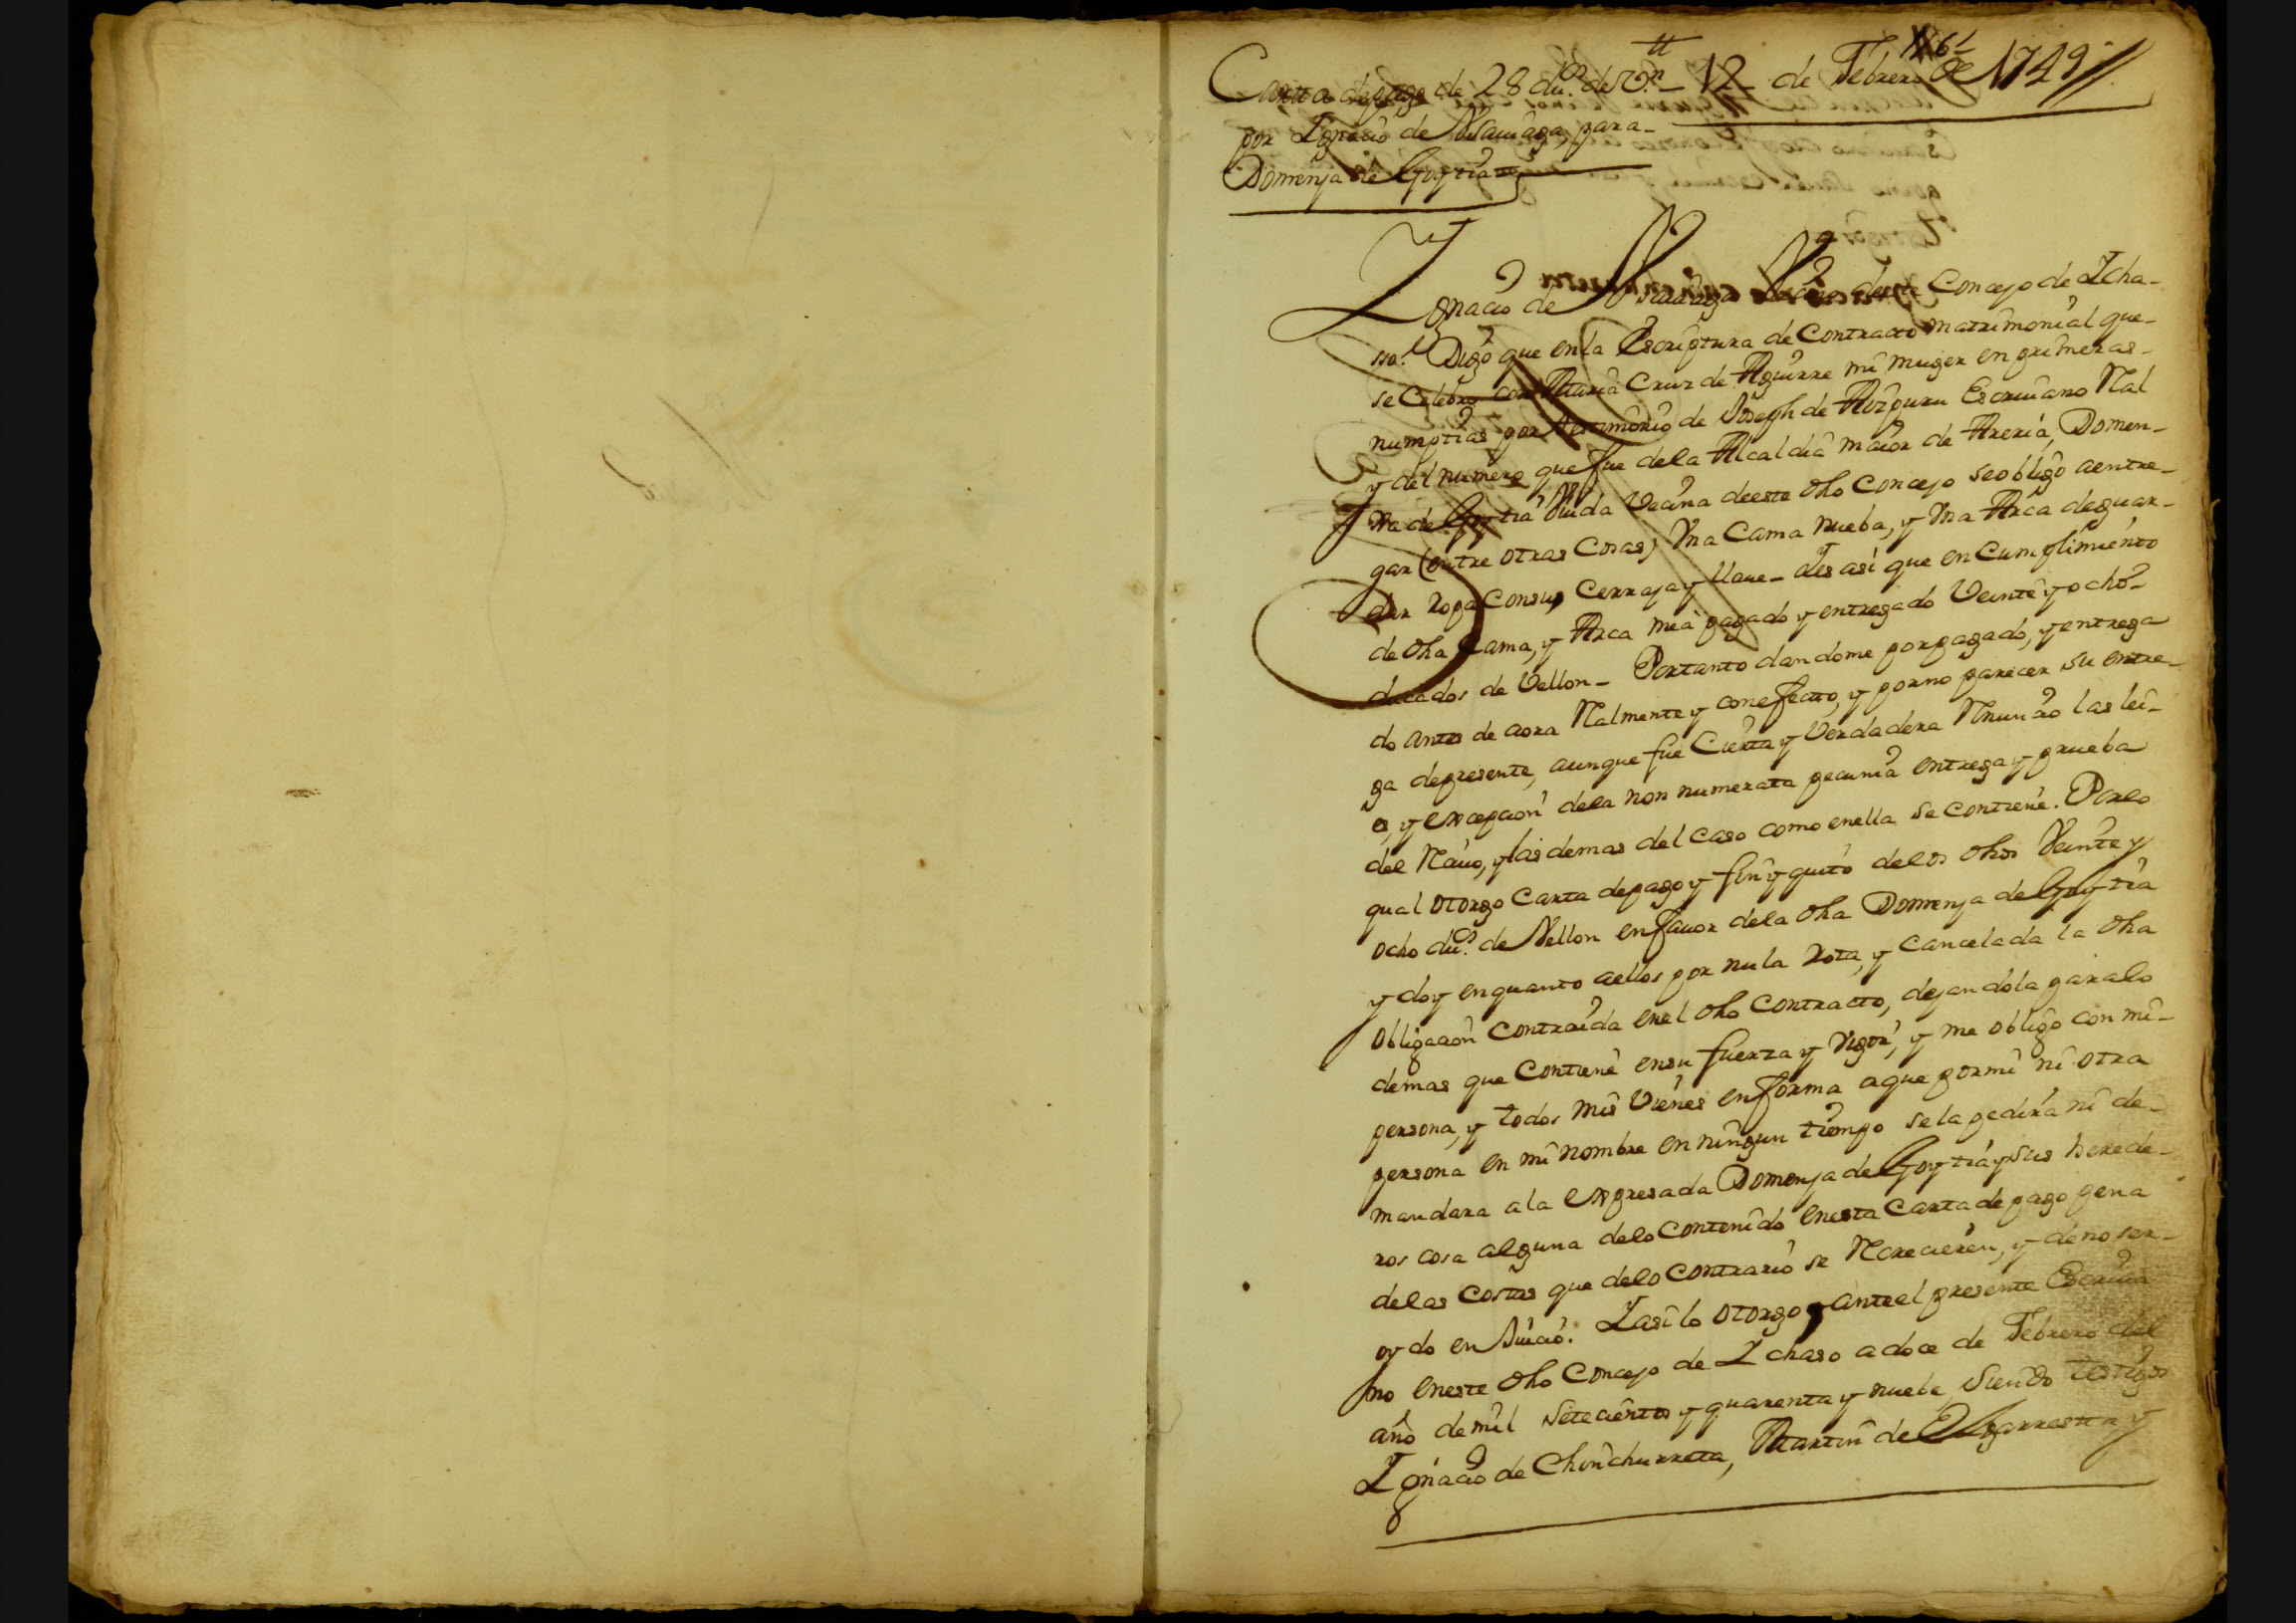 Carta de pago de 28 du.s de v.n 12 de Febrero de 1749
por Ygnacio de para
Domenja de Goytia
Ygnacio de vecino deeste Concejo de Ycha-
sso. Digo que enla Escriptura de Contracto matrimonial que
se Celebro con Maria Cruz de Aguirre mi muger en primeras
numptias por testimonio de Joseph de Aizpuru Escriuano Rl
y del numero que fue dela Alcaldia maior de Areria, Domen-
ja de Goytia Viuda Vecina deeste dho Concejo seobligo aentre-
gar (entre otras Cosas) Vna Cama nueba, y Vna Arca deguar-
dar ropa Consu Cerraja y llaue- Yes asi que en Cumplimiento
de dha Cama, y Arca mea pagado y entregado Veinte y ocho
ducados de Vellon- Portanto dandome porpagado, y entrega
do antes de aora Ralmente y conefecto, y porno parecer su entre-
ga depresente, aunque fue Cierta y Verdadera Rnunzio las lei-
es, y excepcion dela non numerata pecunia entrega y prueba
del Rauo, y las demas del Caso como enella se Contiene. Porlo
qual otorgo Carta depago y finyquito delos dhos Veinte y
ocho du.s de Vellon enfauor dela dha Domenja de Goytia
y doy enquanto aellos por nula rota, y Cancelada la dha
obligacion Contraida enel dho Contracto, dejandola paralo
demas que Contiene ensu fuerza y Vigor, y me obligo con mi
persona, y todos mis Vienes enforma aque pormi ni otra
persona en mi nombre en ningun tiempo sela pedira ni de-
mandara ala expresada Domenja de Goytia y sus herede-
ros cosa alguna delo Contenido enesta Carta de pago pena
delas Costas que delo Contrario se Rcrecieren, y deno ser
oydo en Juicio. Yasi lo otorgo anteel presente Escriua
no eneste dho Concejo de Ychaso adoce de Febrero del
año demil Setecientos y quarenta y nuebe, siendo testigos
Ygnacio de Chinchurreta, Martin de Elgarresta y